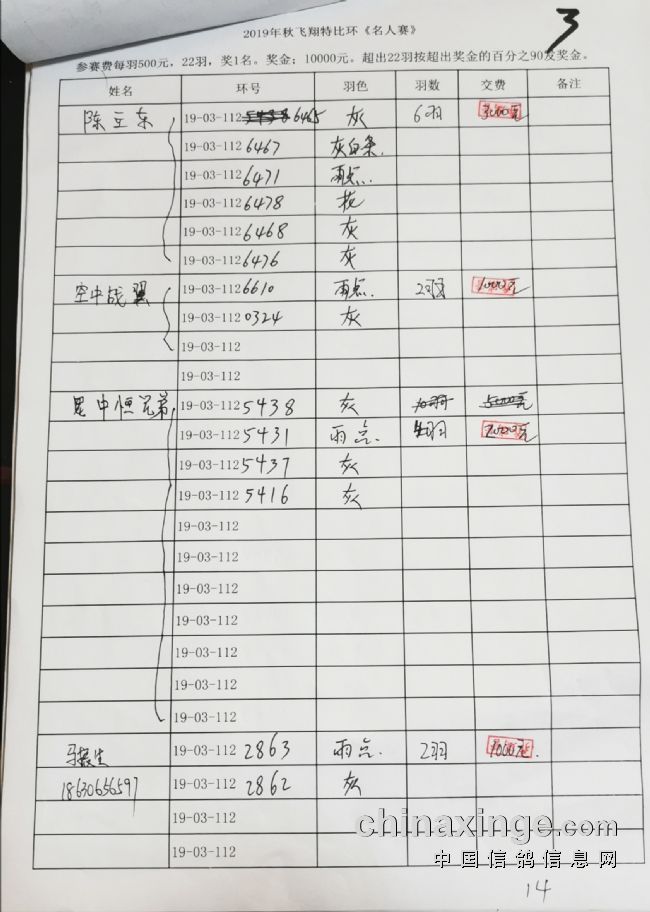 3
2019年秋飞翔特比环《名人赛》
参赛费每羽500元，22羽，奖1名。奖金；10000元。超出22羽按超出奖金的百分之90发奖金。
姓名 环号 羽色 羽数 交费 备注
陈立东 19-03-112 6465 灰 6羽 3000元
19-03-112 6467 灰白条.
19-03-112 6471 雨点.
19-03-112 6478
19-03-112 6468 灰
19-03-112 6476 灰
空中战翼 19-03-112 6610 雨点. 2羽 1000元
19-03-112 0324 灰
19-03-112
19-03-112
中恒兄弟 19-03-112 5438 灰 10羽 5000元
19-03-112 5431 雨点. 4羽 2000元
19-03-112 5437 灰
19-03-112 5416 灰
19-03-112
19-03-112
19-03-112
19-03-112
19-03-112
19-03-112
19-03-112
马振生 19-03-112 2863 雨点. 2羽 1000元.
18630656597 19-03-112 2862 灰
19-03-112
19-03-112
chinaxinge.com
中国信鸽信息网
14